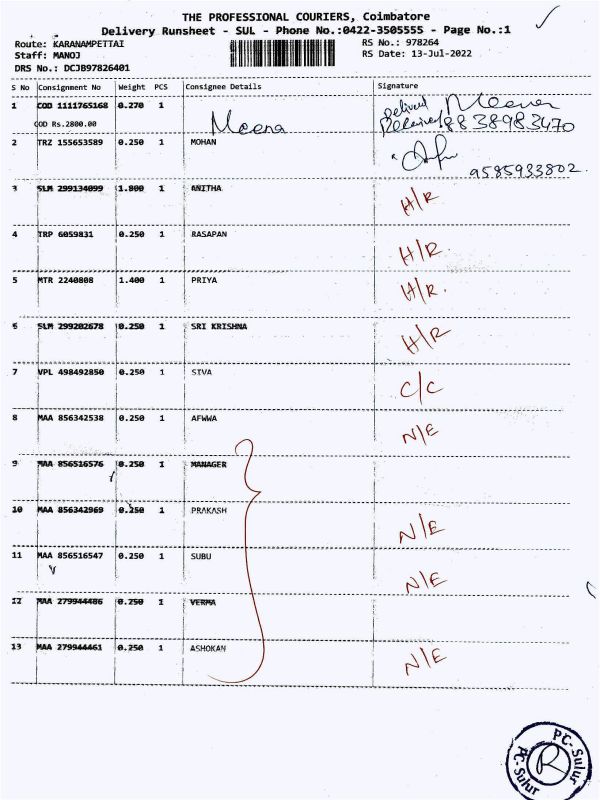 THE PROFESSIONAL COURIERS, Coimbatore
Delivery Runsheet - SUL - Phone No.:0422-3505555 - Page No.:1
Route: KARANAMPETTAI
RS No.: 978264
Staff: MANOJ
RS Date: 13-Jul-2022
DRS No.: DCJB97826401
S No Consignment No Weight PCS Consignee Details Signature
1 COD 1111765168 0.270 1 Meena Delivered Meena
COD Rs.2800.00 Received 8838983470
2 TRZ 155653589 0.250 1 MOHAN
9585933802
3 SLM 299134099 1.800 1 ANITHA H/R
4 TRP 6059831 0.250 1 RASAPAN H/R
5 MTR 2240808 1.400 1 PRIYA H/R.
6 SLM 299202678 0.250 1 SRI KRISHNA H/R
7 VPL 498492850 0.250 1 SIVA C/C
8 MAA 856342538 0.250 1 AFWWA N/E
9 MAA 856516576 0.250 1 MANAGER
10 MAA 856342969 0.250 1 PRAKASH N/E
11 MAA 856516547 0.250 1 SUBU N/E
12 MAA 279944486 0.250 1 VERMA
13 MAA 279944461 0.250 1 ASHOKAN N/E
PC-Sulur
R
PC-Sulur